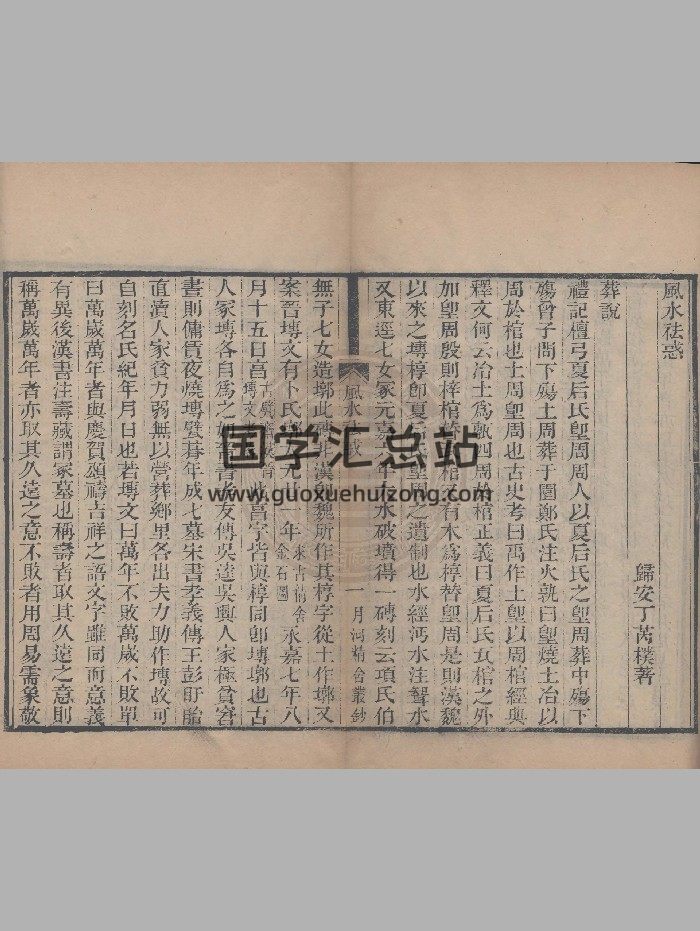 風水祛惑
歸安丁芮樸著
葬說
禮記檀弓夏后氏堲周周人以夏后氏之堲周葬中殤下
殤曾子問下殤土周葬于園鄭氏注火孰曰堲燒土冶以
周於棺也土周堲周也古史考曰禹作土堲以周棺經典
釋文何云冶土爲甎四周於棺正義曰夏后氏瓦棺之外
加堲周殷則梓棺替瓦棺又有木爲椁替堲周是則漢魏
以來之塼椁卽夏后氏堲周之遺制也水經沔水注聾水
又東逕七女冢元嘉六年大水破墳得一磚刻云項氏伯
風水祛惑
一
月河精舍叢鈔
無子七女造墎此磚非漢卽魏所作其椁字從土作墎又
案晉塼文有卜氏墎元北一年 來古情舍金石圖 永嘉七年八
月十五日亯 古廣 塼文 此亯字皆與椁同卽塼墎也古
人冢塼各自爲之如晉書孝友傳吳逵吳興人家極貧窘
晝則傭賃夜燒塼甓朞年成七墓宋書孝義傳王彭盱眙
直瀆人家貧力弱無以營葬鄉里名出夫力助作塼故可
自刻名氏紀年月日也若塼文曰萬年不敗萬歲不敗單
曰萬歲萬年者與慶賀頌禱吉祥之語文字雖同而意義
有異後漢書注壽藏謂冢墓也稱壽者取其久遠之意則
稱萬歲萬年者亦取其久遠之意不敗者用周易需象敬
国学汇总站
www.guoxuehuizong.com